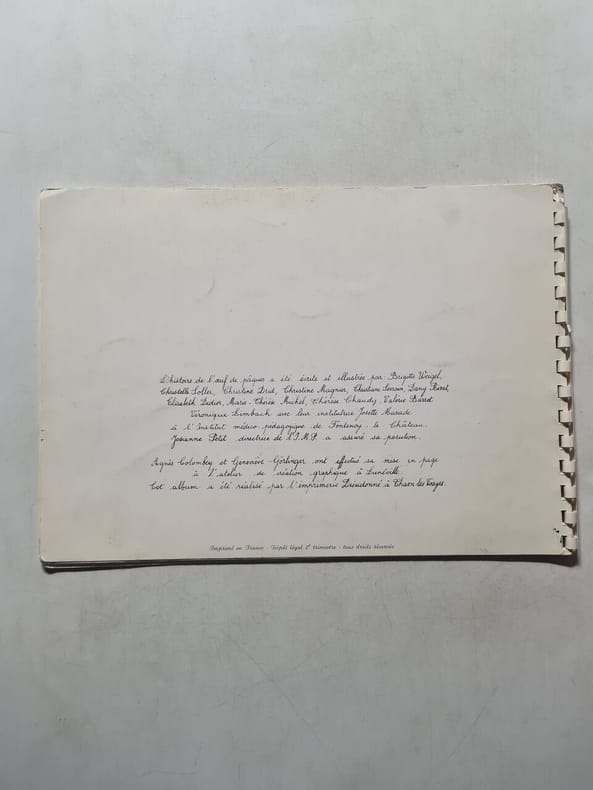 L'histoire de l'œuf de pâques a été écrite et illustrée par Brigitte Weigel,
Christelle Soller, Christine Christine Magnier, Christiane Dany
Elisabeth Didier, Marie-Thérèse Michel, Thérèse Chaudy, Valérie Barret
Véronique Limbach avec leur institutrice Josette Marade
à l'Institut médico-pédagogique de Fontenoy-le Château.
Josianne Petit directrice de l'I.M.P. a assuré sa parution.
Agnès Colombey et Geneviève Görlinger ont effectué sa mise en page
à l'atelier de création graphique à Lunéville.
Cet album a été réalisé par l'imprimerie Dieudonné à Thaon les Vosges.
Imprimé en France - Dépôt légal 2e trimestre - tous droits réservés